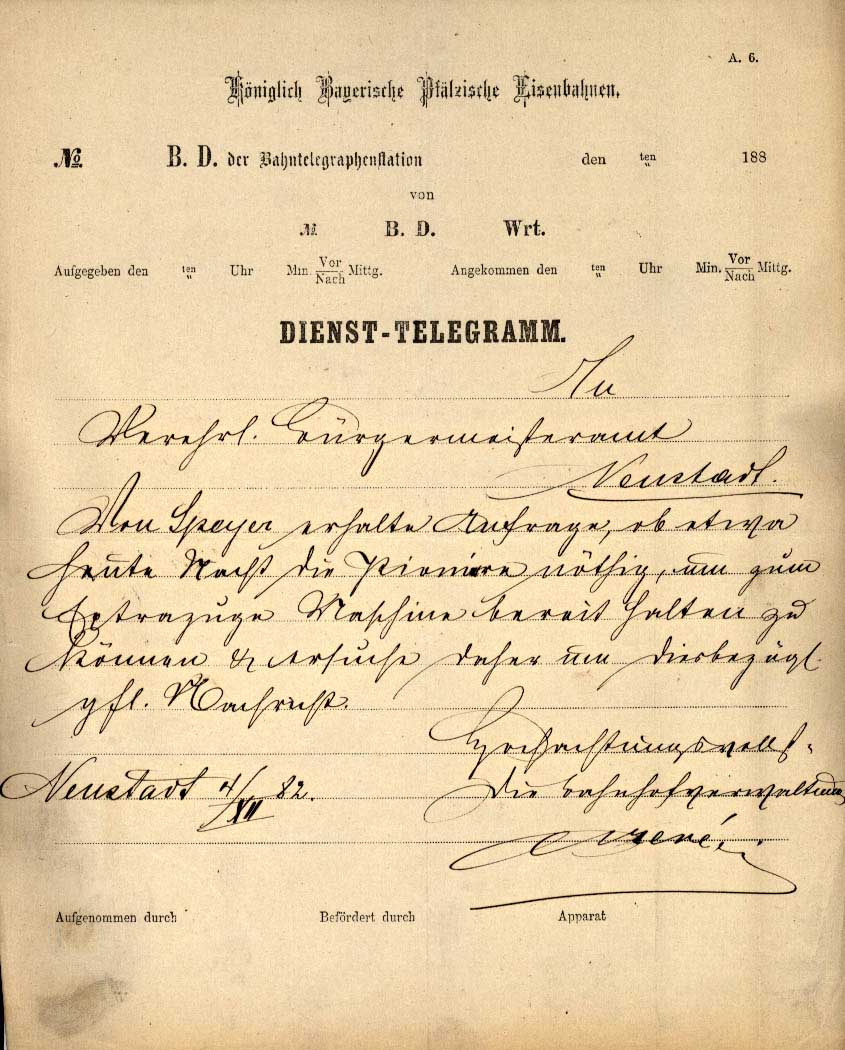 A. 6.
Königlich Bayerische Pfälzische Eisenbahnen.
No. B. D. der Bahntelegraphenstation den ten 188
von
№ B. D. Wrt.
Aufgegeben den ten Uhr Min. Vor/Nach Mittg. Angekommen den ten Uhr Min. Vor/Nach Mittg.
DIENST-TELEGRAMM.
An
Verehrl. Bürgermeisteramt
Neustadt.
Von Speyer erhalte Anfrage, ob etwa
heute Nacht die Pioniere nöthig, um zum
Extrazuge Maschine bereit halten zu
können & ersuche daher um diesbezügl.
gfl. Nachricht.
Hochachtungsvollst
Neustadt 4/XII 82. Die Bahnhofverwaltung
Aufgenommen durch Befördert durch Apparat